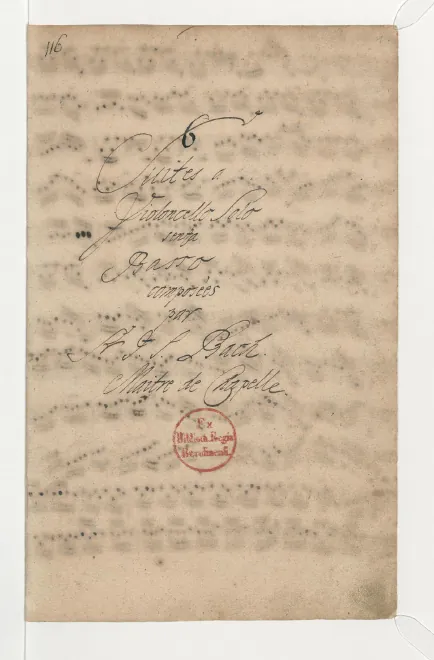 116
6
Suites a
Violoncello Solo
senza
Basso
composées
par
J. S. Bach.
Maitre de Chapelle.
Ex
Biblioth. Regia
Berolinensi.